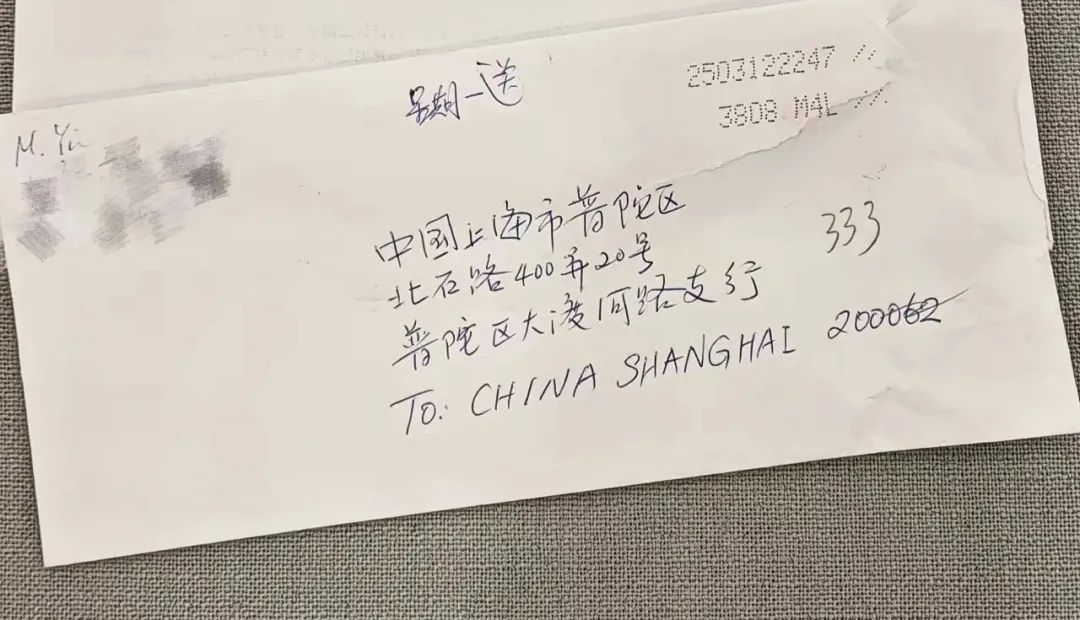 M. Yin
星期一送
2503122247 //
3808 M4L //
中国上海市普陀区
北石路400弄20号
333
普陀区大渡河路支行
To: CHINA SHANGHAI 200062